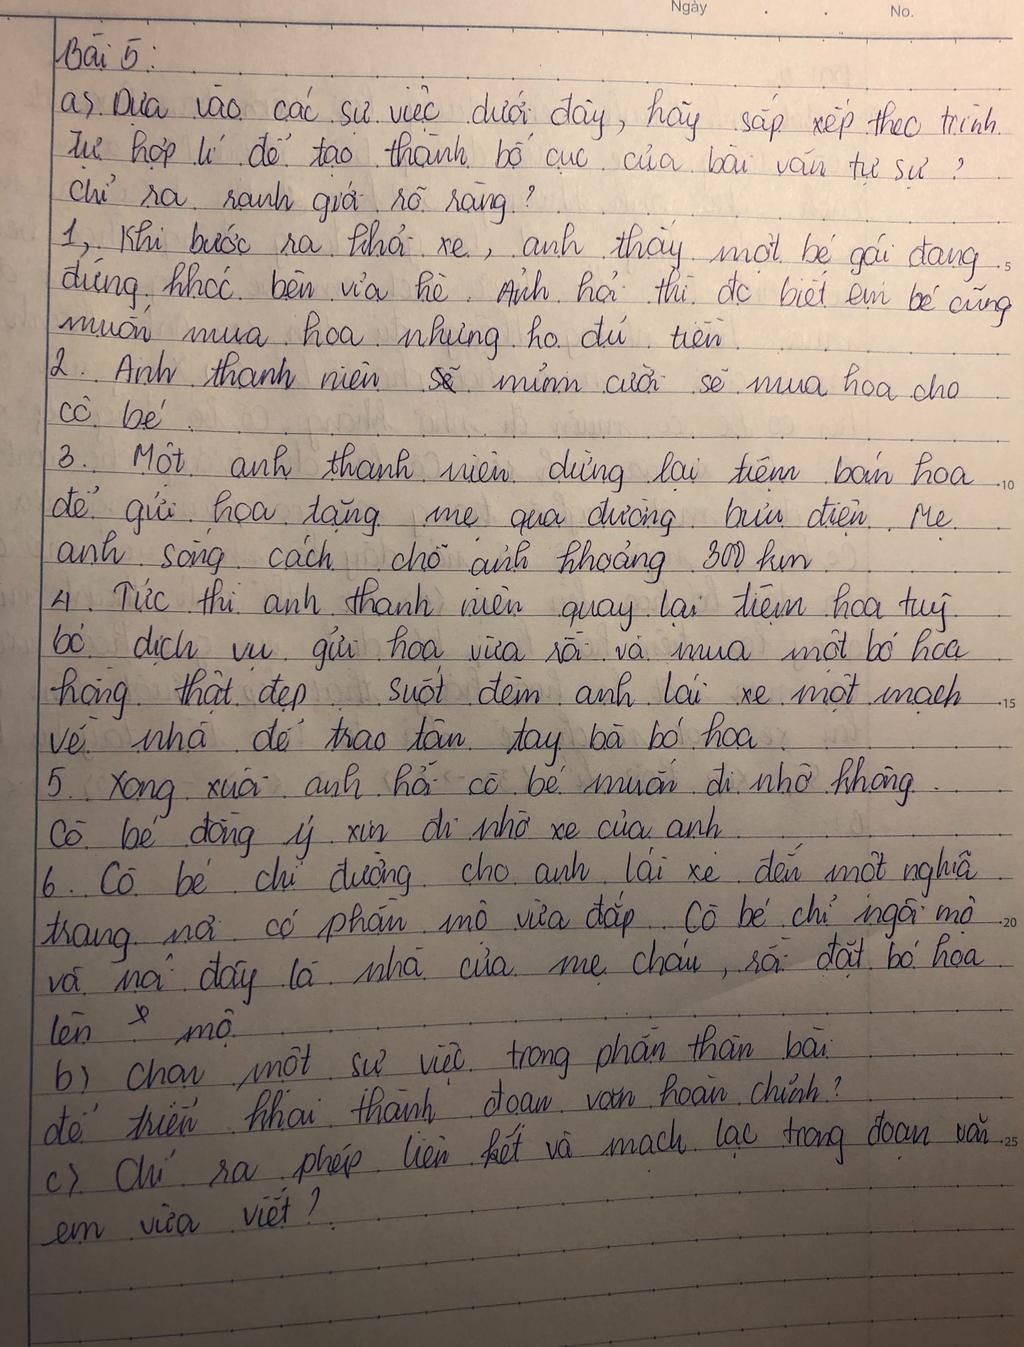 Ngày . . No.
Bài 5:
a) Dựa vào các sự việc dưới đây, hãy sắp xếp theo trình
tự hợp lí để tạo thành bố cục của bài văn tự sự?
chỉ ra ranh giới rõ ràng?
1, Khi bước ra khỏi xe, anh thấy một bé gái đang 5
đứng khóc bên vỉa hè. Anh hỏi thì đc biết em bé cũng
muốn mua hoa nhưng ko đủ tiền
2. Anh thanh niên mỉm cười sẽ mua hoa cho
cô bé
3. Một anh thanh niên dừng lại tiệm bán hoa 10
để gửi hoa tặng mẹ qua đường bưu điện. Mẹ
anh sống cách chỗ anh khoảng 300 km
4. Tức thì anh thanh niên quay lại tiệm hoa huỷ
bỏ dịch vụ gửi hoa vừa rồi và mua một bó hoa
hồng thật đẹp. suốt đêm anh lái xe một mạch 15
về nhà để trao tận tay bà bó hoa.
5. Xong xuôi anh hỏi cô bé muốn đi nhờ không.
Cô bé đồng ý xin đi nhờ xe của anh
6. Cô bé chỉ đường cho anh lái xe đến một nghĩa
trang nơi có phần mộ vừa đắp. Cô bé chỉ ngôi mộ 20
và nói đây là nhà của mẹ cháu, rồi đặt bó hoa
lên mộ.
b) Chọn một sự việc trong phần thân bài
để triển khai thành đoạn văn hoàn chỉnh?
c) Chỉ ra phép liên kết và mạch lạc trong đoạn văn 25
em vừa viết?